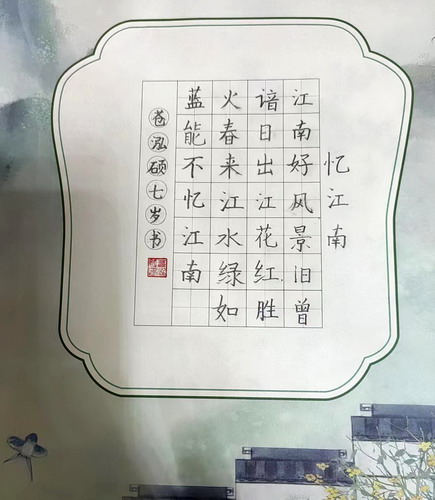 忆江南
江南好风景旧曾
谙日出江花红胜
火春来江水绿如
蓝能不忆江南
苍泓硕七岁书